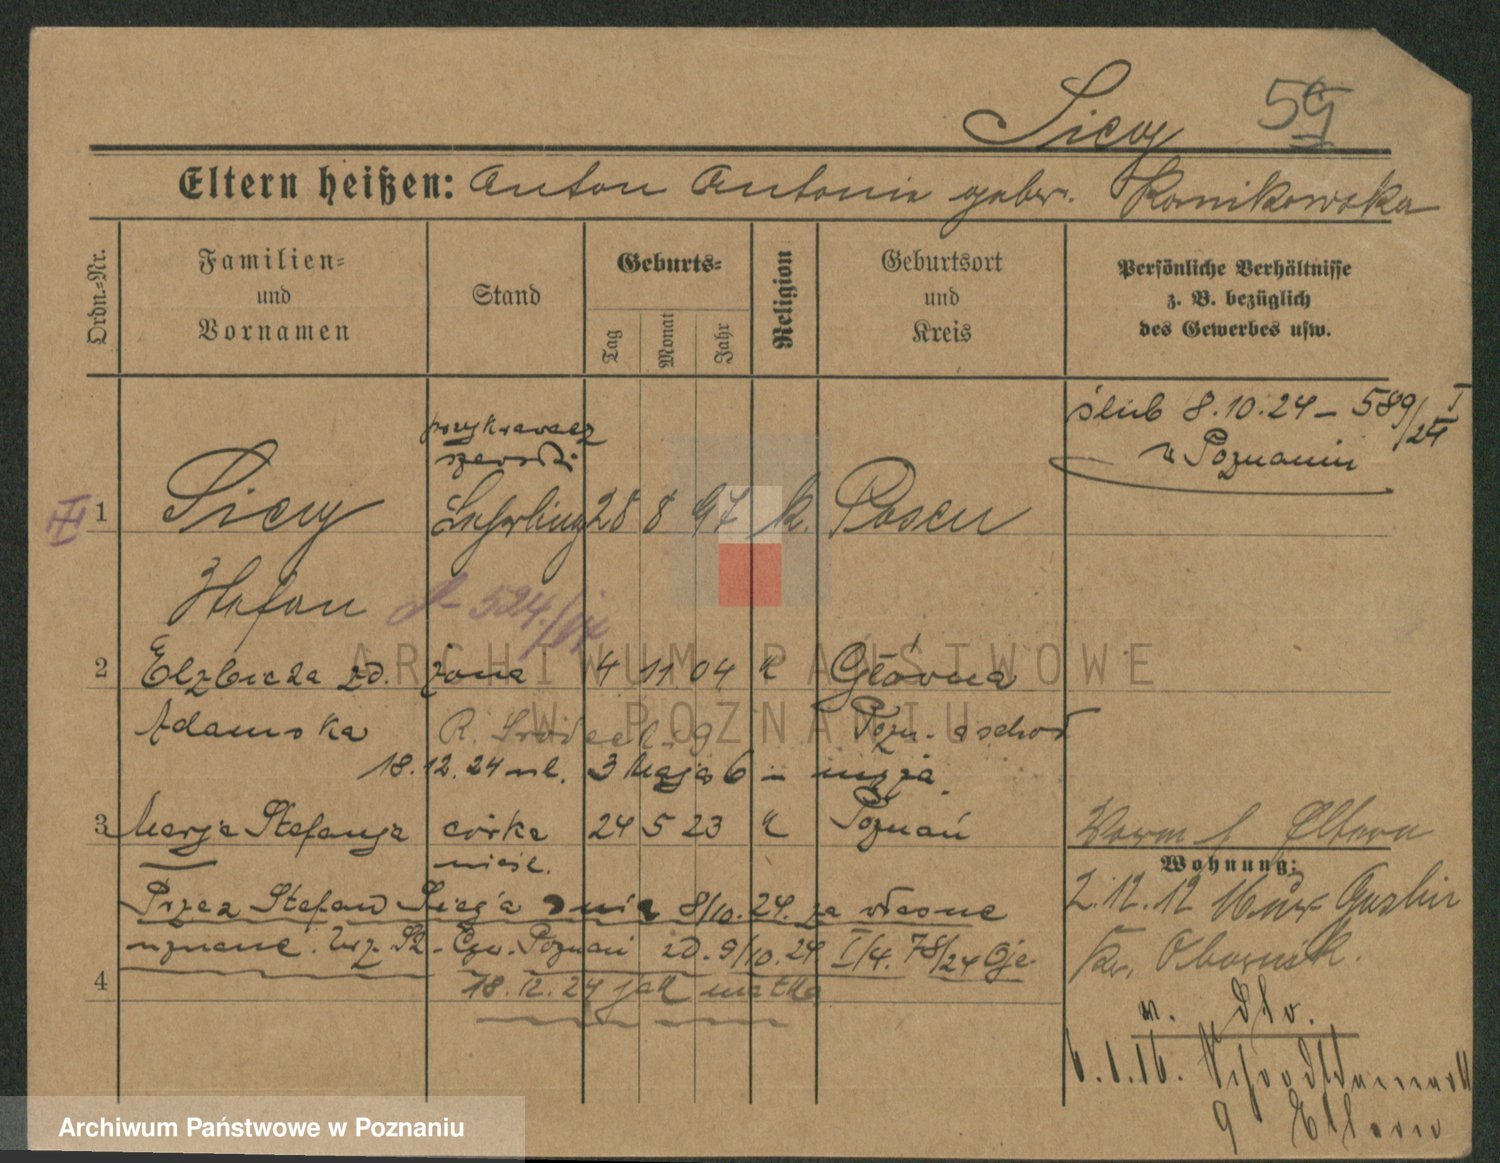 Siew 59
Eltern heißen: Anton Antonie gebor. Kornikowska
Ordn.-Nr.
Familien- und Vornamen
Stand
Geburts-
Tag Monat Jahr
Religion
Geburtsort und Kreis
Persönliche Verhältnisse
z. B. bezüglich
des Gewerbes usw.
ślub 8.10.24 - 589/24 I
w Poznaniu
przykrawacz
szewski
1 Lehrling 28 8 97 k. Posen
Stefan 524/
2 Elzbieta zd. żona 4 11 04 k Główna
Adamska Pozn. wschod
18.12.24 3 Maja 6 -
3 Marja Stefanja córka 24 5 23 k Poznań
nieśl.
Przez Stefana dnia 8/10.24. za własne
uznane. Poznań zd. 9/10.24 I/4. 78/24
4 18.12.24 jak matka
Eltern
Wohnung:
2.12.12
Kr. Obornik.
w. dto.
6.1.16.
9 Eltern
ARCHIWUM PAŃSTWOWE
W POZNANIU
Archiwum Państwowe w Poznaniu